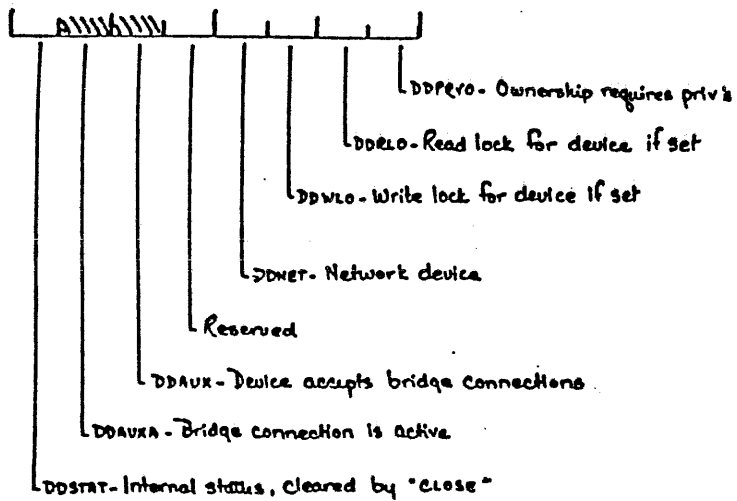 DDPRVO - Ownership requires priv's
DDRLO - Read lock for device if set
DDWLO - Write lock for device if set
DDNET - Network device
Reserved
DDAUX - Device accepts bridge connections
DDAUXA - Bridge connection is active
DDSTAT - Internal status, cleared by "CLOSE"